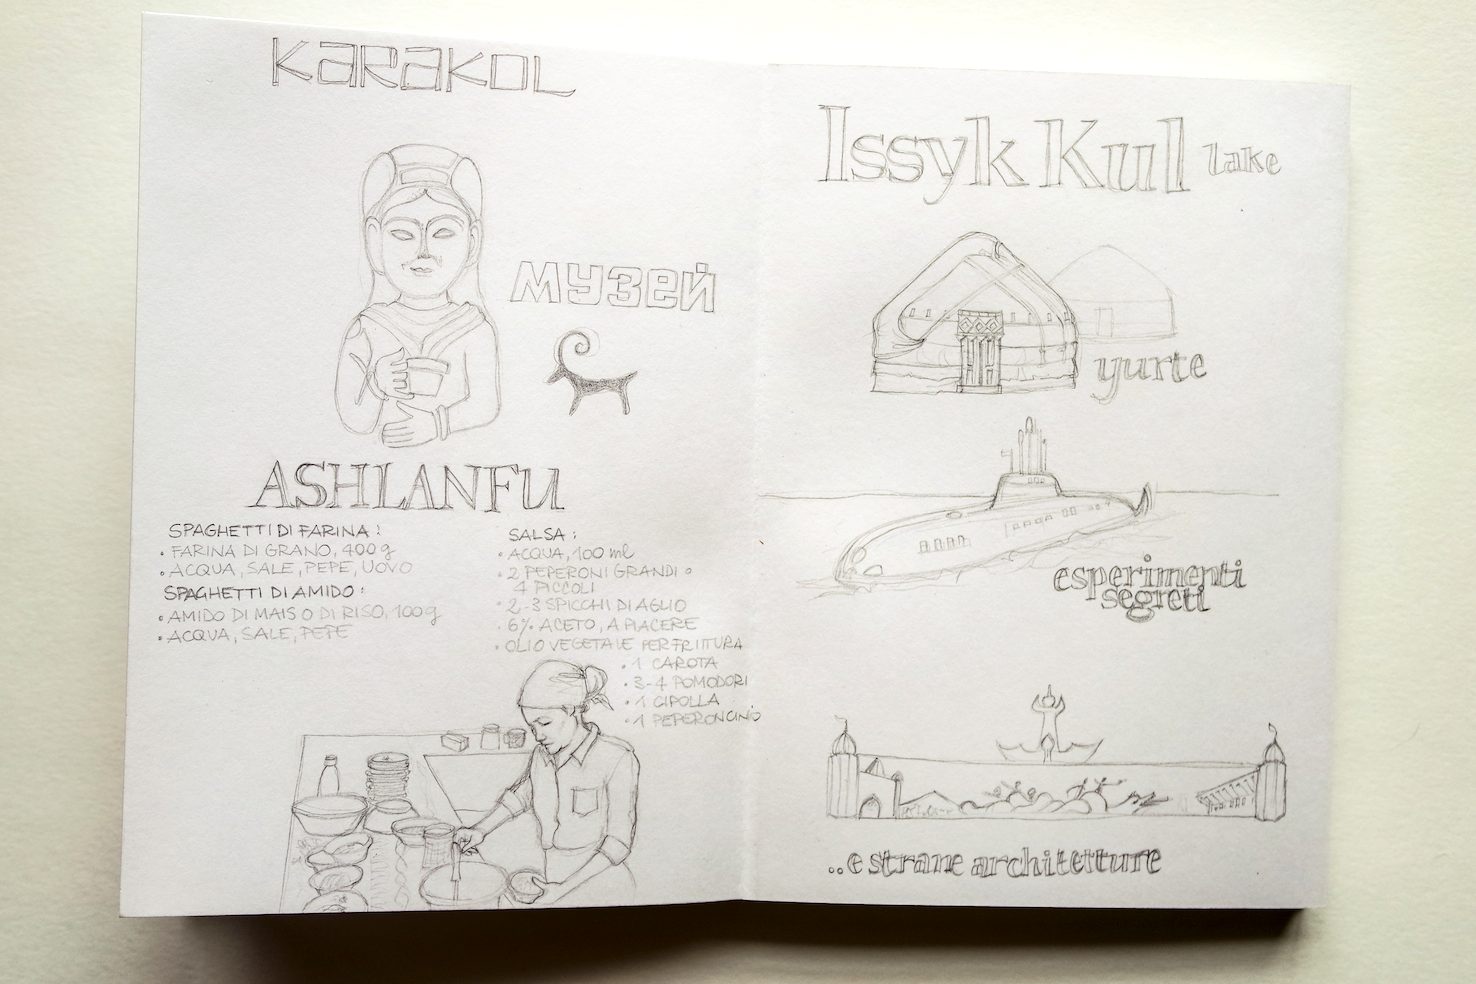 KARAKOL
МУЗЕЙ
ASHLANFU
SPAGHETTI DI FARINA:
• FARINA DI GRANO, 400 g
• ACQUA, SALE, PEPE, UOVO
SPAGHETTI DI AMIDO:
• AMIDO DI MAIS O DI RISO, 100 g
• ACQUA, SALE, PEPE
SALSA:
• ACQUA, 100 ml
• 2 PEPERONI GRANDI o
4 PICCOLI
• 2-3 SPICCHI DI AGLIO
• 6% ACETO, A PIACERE
• OLIO VEGETALE PER FRITTURA
• 1 CAROTA
• 3-4 POMODORI
• 1 CIPOLLA
• 1 PEPERONCINO
Issyk Kul lake
yurte
esperimenti
segreti
..e strane architetture